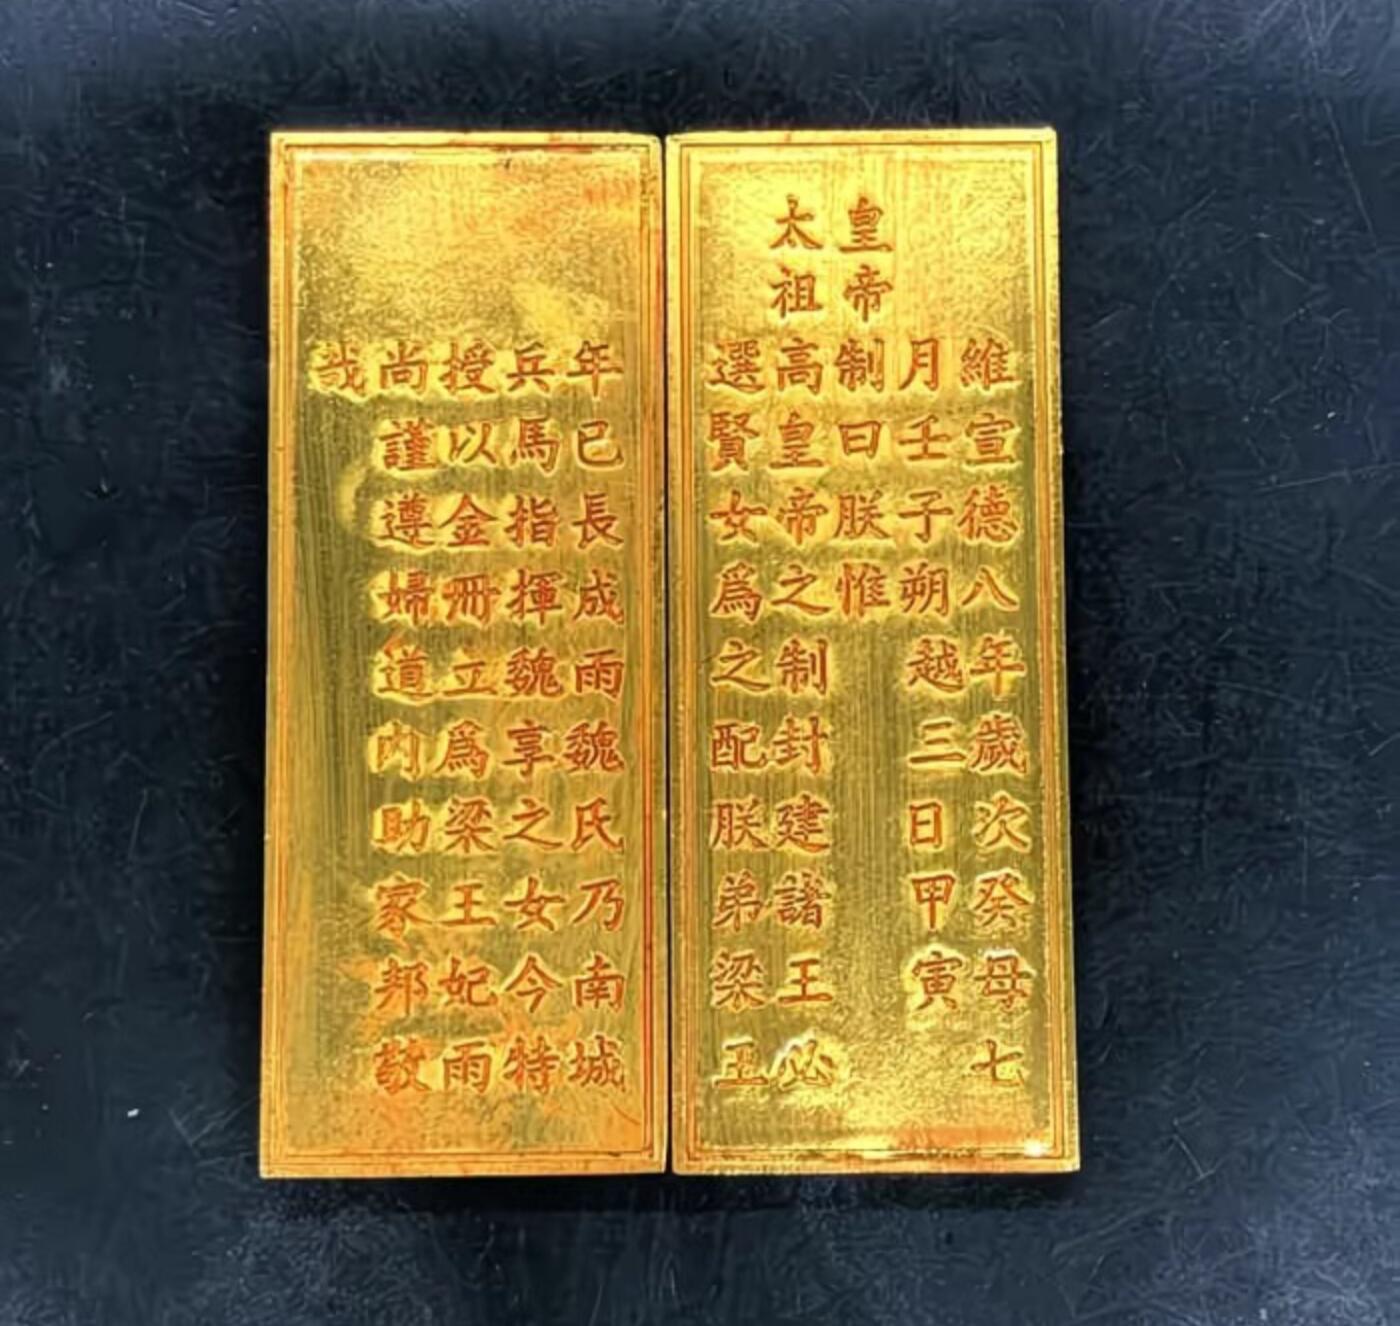 維宣德八年歲次癸母七
月壬子朔越三日甲寅
皇帝制曰朕惟
太祖高皇帝之制封建諸王必
選賢女爲之配朕弟梁王
年已長成雨魏氏乃南城
兵馬指揮魏享之女今特
授以金冊立爲梁王妃雨
尚謹遵婦道内助家邦敬
哉